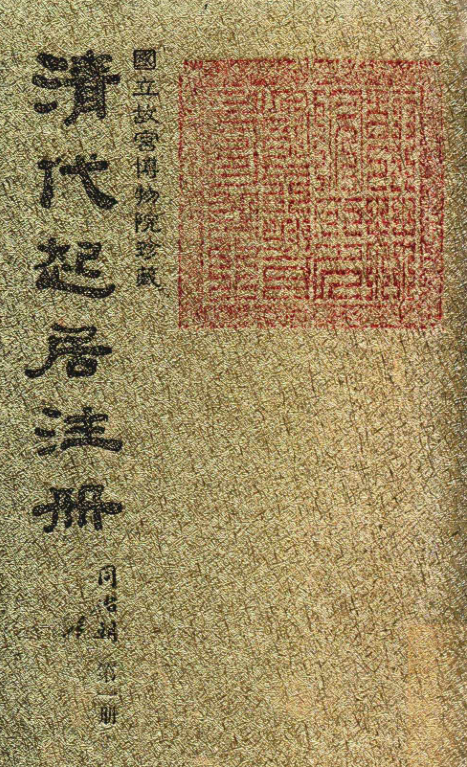 國立故宮博物院珍藏
清代起居注册
同治朝 第一册